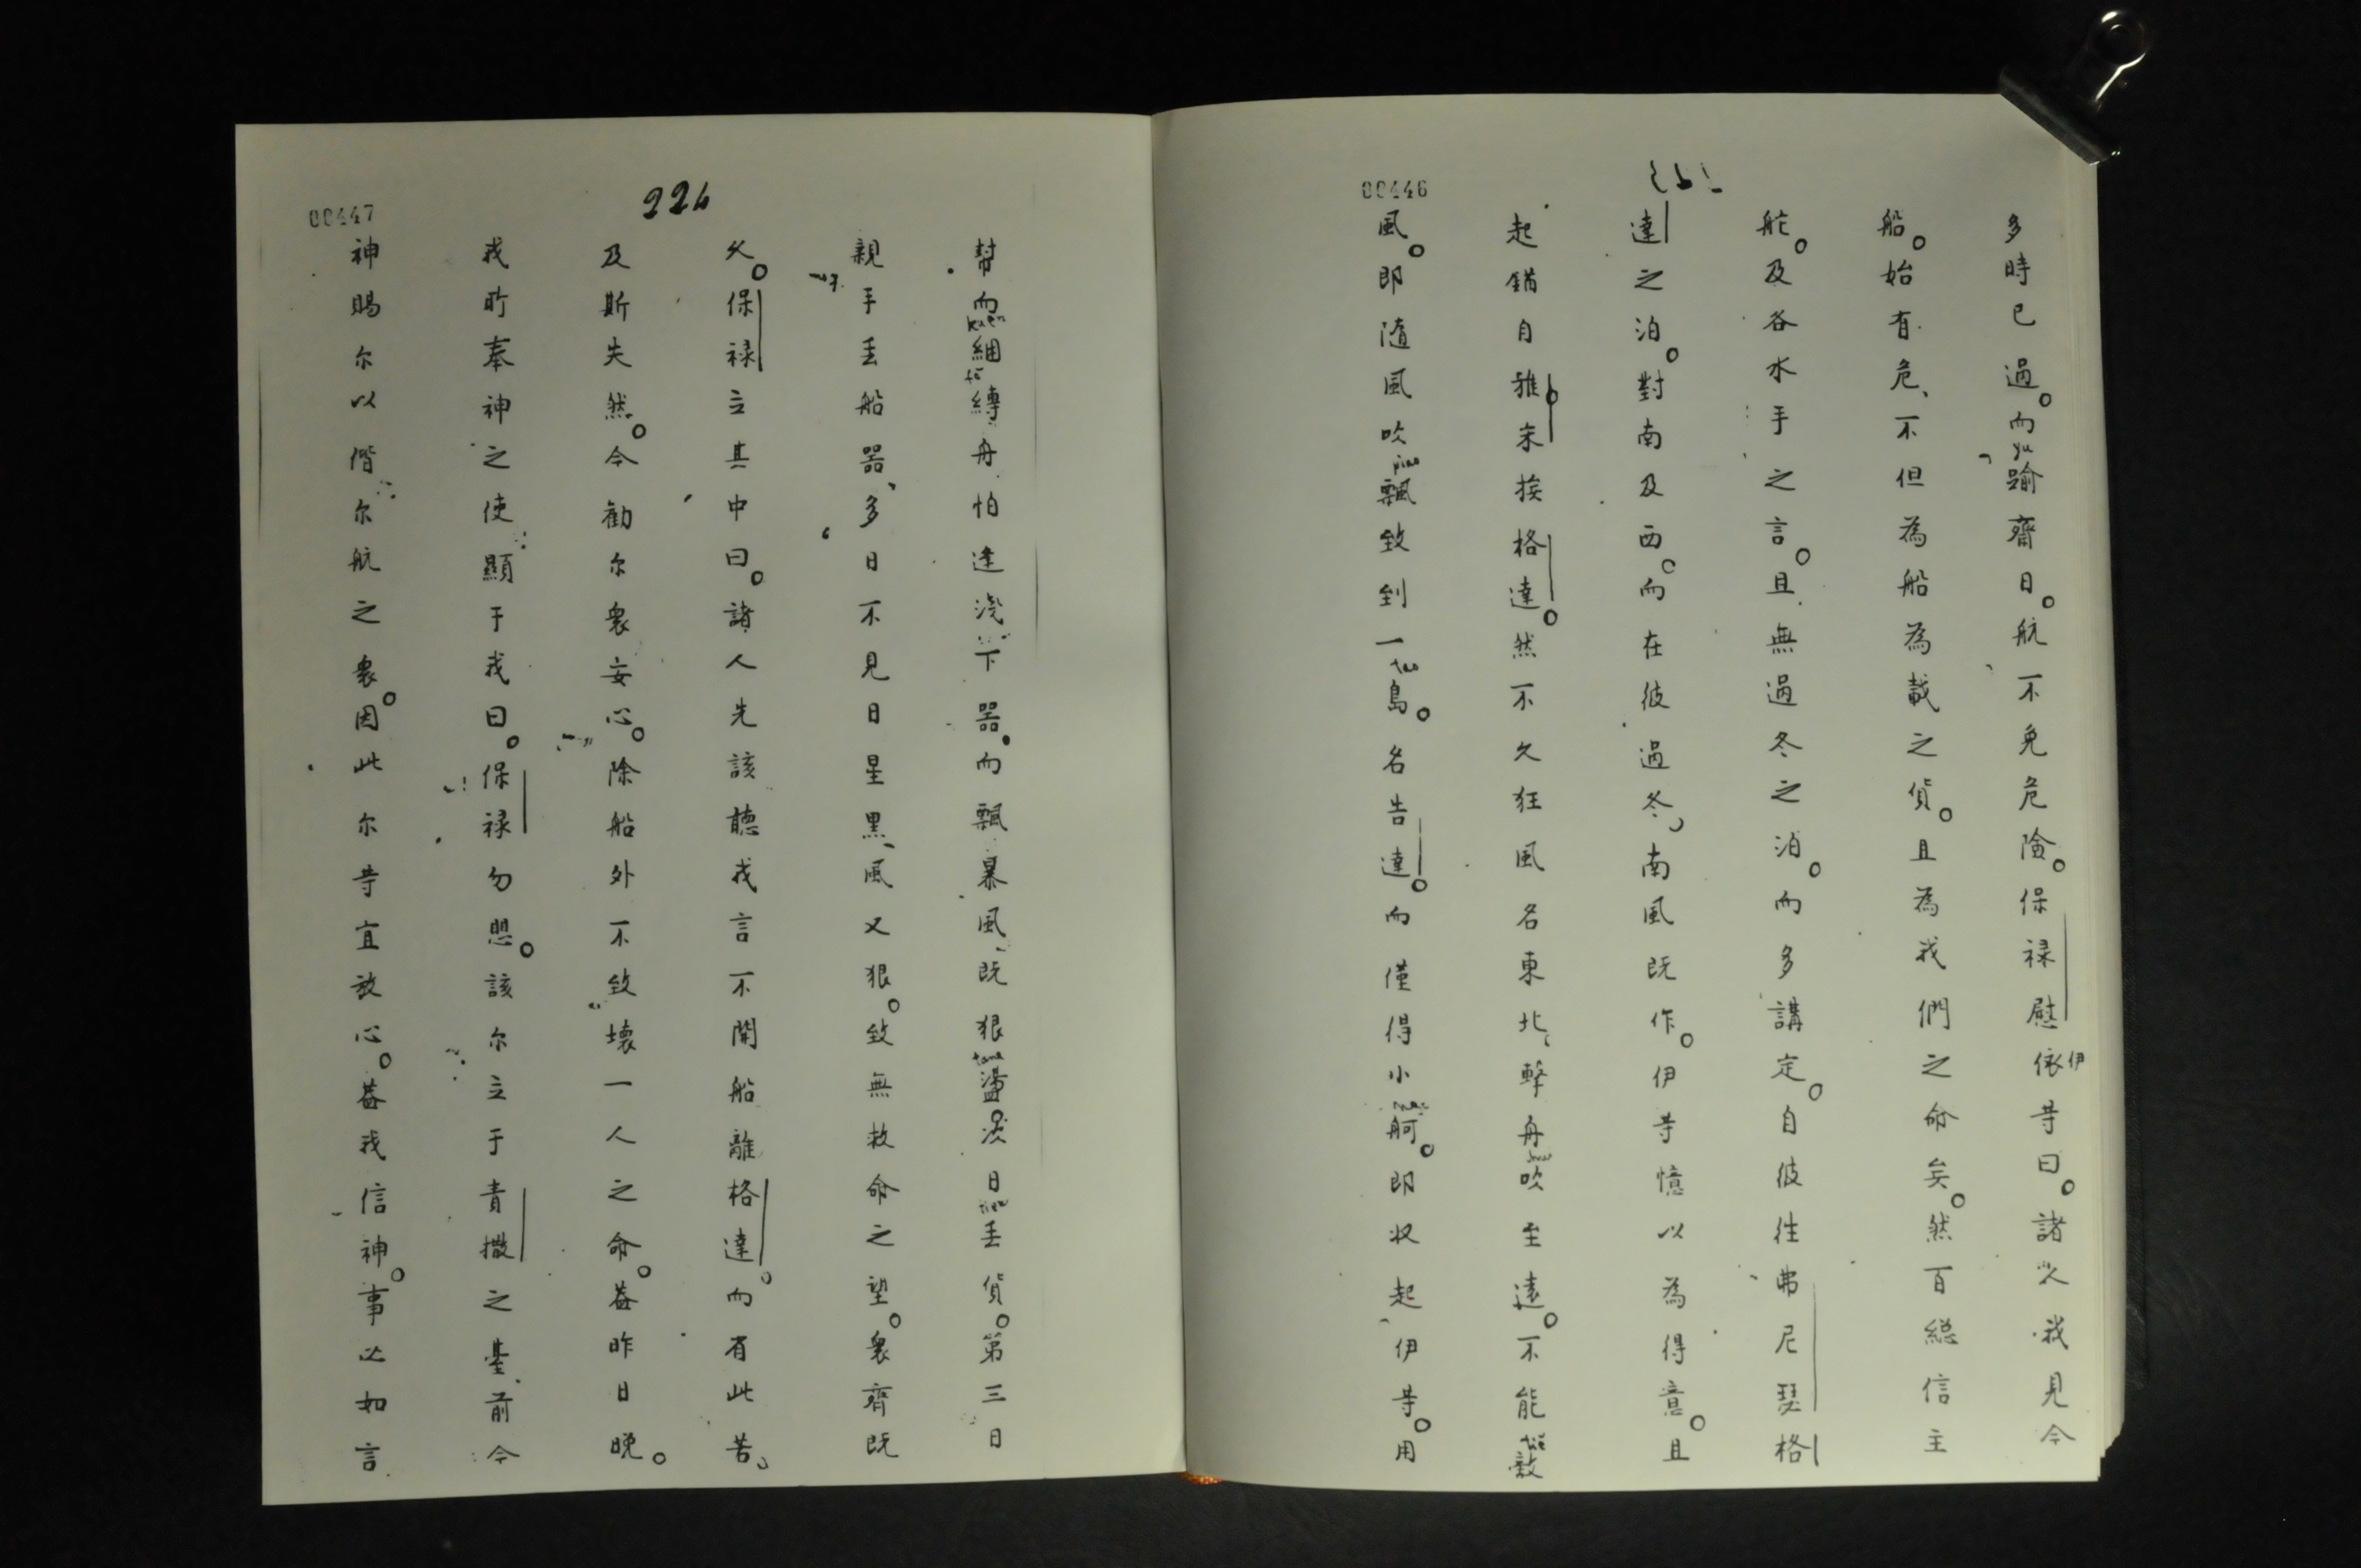 00446
多時已過。而踰齋日。航不免危險。保禄慰依伊䓁曰。諸人我見今
船。始有危、不但為船為載之貨。且為我們之命矣。然百総信主
舵。及各水手之言。且無過冬之泊。而多講定。自彼往弗尼瑟格
達之泊。對南及西。而在彼過冬、南風既作。伊䓁憶以為得意。且
起錨自雅宋挨格達。然不久狂風名東北、擊舟吹至遠。不能敵
風。即隨風吹飄致到一島。名告達。而僅得小舸。即收起伊䓁。用
224
00447
幇而綑縛舟怕逢淺下器。而飄暴風、既狠盪次日丢貨。第三日
親手丢船器、多日不見日星黑、風又狠。致無救命之望。衆齋既
久。保禄立其中曰。諸人先該聴我言不開船離格達。而有此苦。
及斯失然。今勸尔衆妄心。除船外不致壊一人之命。葢昨日晚。
我所奉神之使顕于我曰。保禄勿思。該尔立于責撒之臺前今
神賜尔以偕尔航之衆。因此尔䓁宜放心。葢我信神。事必如言